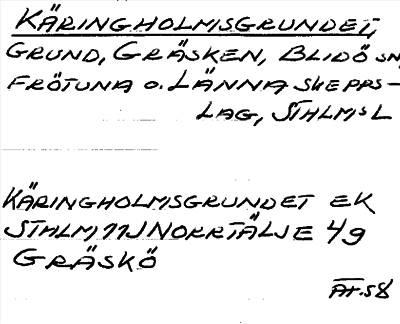 KÄRINGHOLMSGRUNDET,
GRUND, GRÄSKEN, BLIDÖ SN,
FRÖTUNA O. LÄNNA SKEPPS-
LAG, STHLMS L
KÄRINGHOLMSGRUNDET EK
STHLM 11J NORRTÄLJE 4g
GRÄSKÖ
ÄT.58